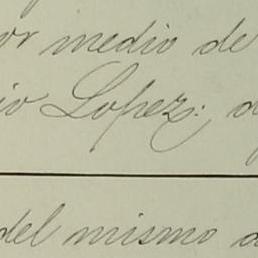 or medio de
io Lopez; d
del mismo a